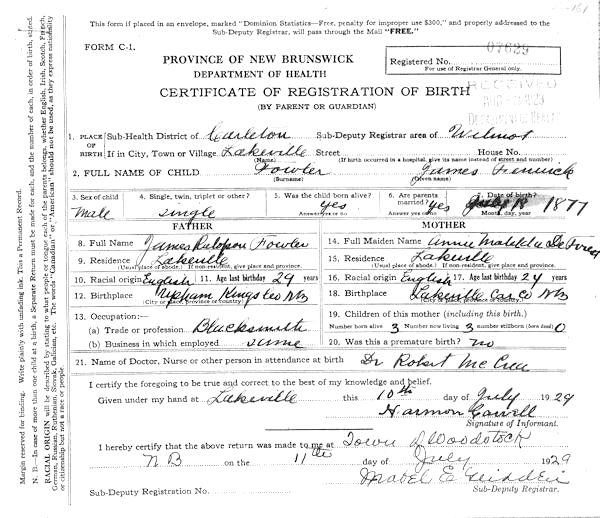 This form if placed in an envelope, marked "Dominion Statistics—Free, penalty for improper use $300," and properly addressed to the
Sub-Deputy Registrar, will pass through the Mail "FREE."
FORM C-1.
PROVINCE OF NEW BRUNSWICK
DEPARTMENT OF HEALTH
07629
Registered No.
For use of Registrar General only.
CERTIFICATE OF REGISTRATION OF BIRTH
(BY PARENT OR GUARDIAN)
RECEIVED
1. PLACE OF BIRTH Sub-Health District of Carleton Sub-Deputy Registrar area of Wilmot
If in City, Town or Village Lakeville Street House No.
(Name) (If birth occurred in a hospital, give its name instead of street and number)
2. FULL NAME OF CHILD Fowler James
(Surname) (Given name)
3. Sex of child 4. Single, twin, triplet or other? 5. Was the child born alive? 6. Are parents married? 7. Date of birth?
male single Answer yes or no yes Answer yes or no yes Month, day, year 18 1877
FATHER MOTHER
8. Full Name James Fowler 14. Full Maiden Name Annie Matilda
9. Residence Lakeville 15. Residence Lakeville
(Usual place of abode.) If non-resident, give place and province. (Usual place of abode.) If non-resident, give place and province.
10. Racial origin English 11. Age last birthday 29 years 16. Racial origin English 17. Age last birthday 24 years
12. Birthplace Upham Kings Co NB 18. Birthplace Lakeville Car Co NB
(City or place, province of country.) (City or place, province or country.)
13. Occupation:— 19. Children of this mother (including this birth.)
(a) Trade or profession Blacksmith Number born alive 3 Number now living 3 number stillborn (born dead) 0
(b) Business in which employed same 20. Was this a premature birth? no
21. Name of Doctor, Nurse or other person in attendance at birth Dr Robert McCrea
I certify the foregoing to be true and correct to the best of my knowledge and belief.
Given under my hand at Lakeville this 10th day of July 1929
Harmon
Signature of Informant.
I hereby certify that the above return was made to me at Town of Woodstock
NB on the 11th day of July 1929
Mabel E
Sub-Deputy Registration No. Sub-Deputy Registrar.
Margin reserved for binding. Write plainly with unfading ink. This a Permanent Record.
N. B.—In case of more than one child at a birth, a Separate Return must be made for each, and the number of each, in order of birth, stated.
RACIAL ORIGIN will be described by stating to what people or race each of the parents belongs, whether English, Irish, Scotch, French,
German, Russian, Ruthenian, Slovak, Galician, etc. The words "Canadian" or "American" should not be used, as they express nationality
or citizenship but not a race or people.